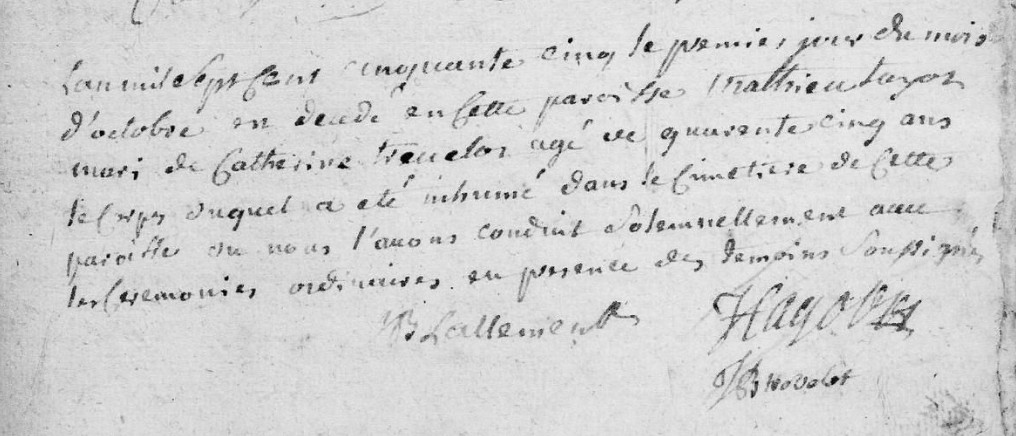 Lan mil sept Cent cinquante cinq le premier jour du mois
d'octobre est decedé en Cette paroisse Mathieu tayot
mari de Catherine trevelot agé de quarente cinq ans
le Corps duquel a eté inhumé dans le Cimetiere de Cette
paroisse ou nous l'avons conduit Solemnellement avec
les Ceremonies ordinaires en presence des temoins Soussignés
JB Lallement Hayotte
JB